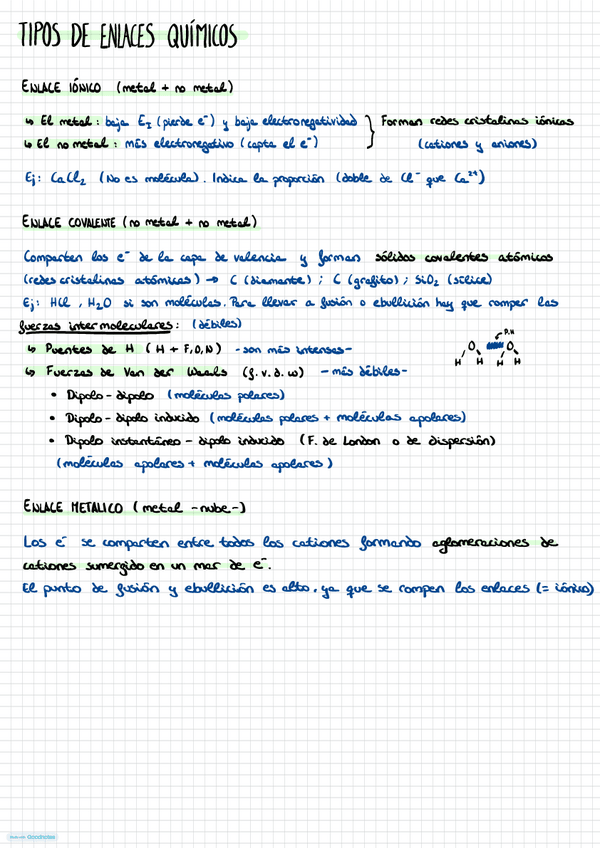 TIPOS DE ENLACES QUÍMICOS
ENLACE IÓNICO (metal + no metal)
↳ El metal: baja E_I (pierde e⁻) y baja electronegatividad } Forman redes cristalinas iónicas
↳ El no metal: más electronegativo (capta el e⁻) (cationes y aniones)
Ej: CaCl₂ (No es molécula). Indica la proporción (doble de Cl⁻ que Ca²⁺)
ENLACE COVALENTE (no metal + no metal)
Comparten los e⁻ de la capa de valencia y forman sólidos covalentes atómicos
(redes cristalinas atómicas) → C (diamante) ; C (grafito) ; SiO₂ (sílice)
Ej: HCl , H₂O si son moléculas. Para llevar a fusión o ebullición hay que romper las
fuerzas intermoleculares: (débiles)
↳ Puentes de H (H + F,O,N) -son más intensas-
P.H
O O
H H H H
↳ Fuerzas de Van der Waals (f.v.d.w) -más débiles-
• Dipolo-dipolo (moléculas polares)
• Dipolo-dipolo inducido (moléculas polares + moléculas apolares)
• Dipolo instantáneo - dipolo inducido (F. de London o de dispersión)
(moléculas apolares + moléculas apolares)
ENLACE METALICO (metal -nube-)
Los e⁻ se comparten entre todos los cationes formando aglomeraciones de
cationes sumergido en un mar de e⁻.
El punto de fusión y ebullición es alto, ya que se rompen los enlaces (= iónico)
Goodnotes